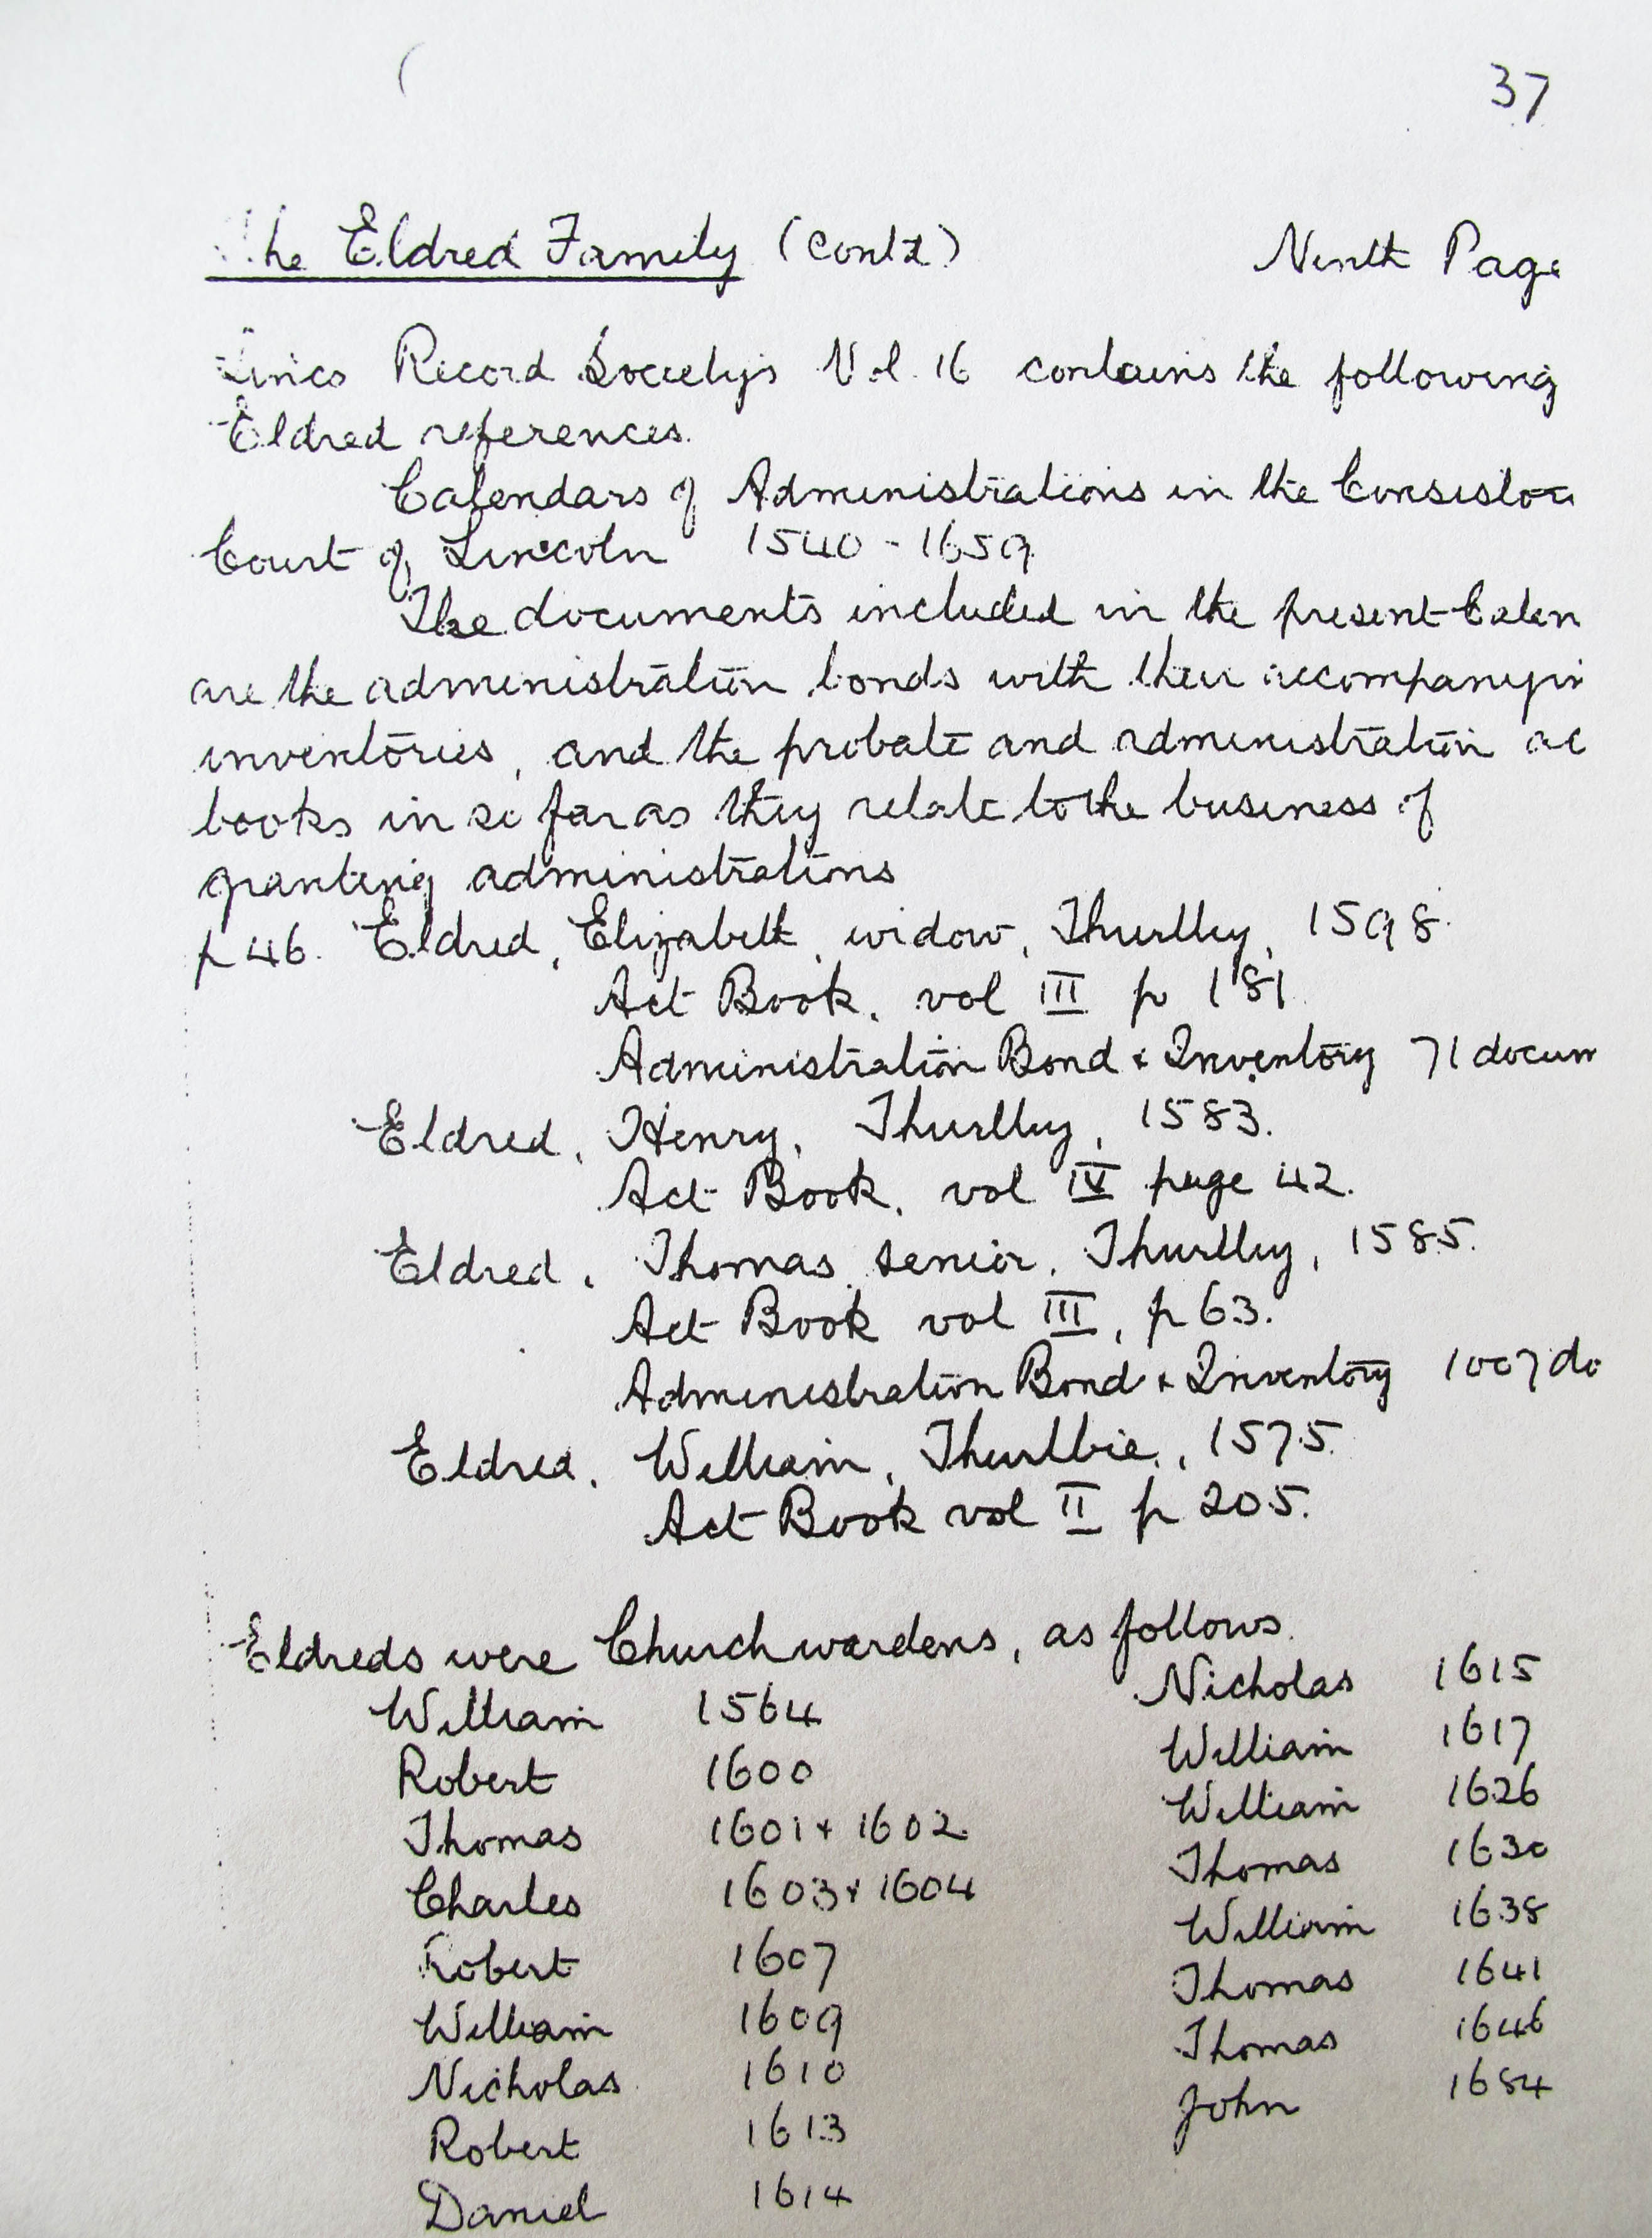 37
The Eldred Family (Contd) Ninth Page
Lincs Record Society's Vol. 16 contains the following
Eldred references.
Calendars of Administrations in the Consistor
Court of Lincoln 1540 - 1659
The documents included in the present Calen
are the administration bonds with their accompanyin
inventories, and the probate and administration ac
books in so far as they relate to the business of
granting administrations
p 46. Eldred, Elizabeth, widow, Thurlby, 1598.
Act Book. vol III p 181.
Administration Bond & Inventory 71 docum
Eldred, Henry, Thurlby, 1583.
Act Book. vol IV page 42.
Eldred, Thomas senior, Thurlby, 1585.
Act Book vol III, p 63.
Administration Bond & Inventory 1007 do
Eldred, William, Thurlbie, 1575.
Act Book vol II p 205.
Eldreds were Churchwardens, as follows.
William 1564 Nicholas 1615
Robert 1600 William 1617
Thomas 1601 & 1602 William 1626
Charles 1603 & 1604 Thomas 1630
Robert 1607 William 1638
William 1609 Thomas 1641
Nicholas 1610 Thomas 1646
Robert 1613 John 1684
Daniel 1614